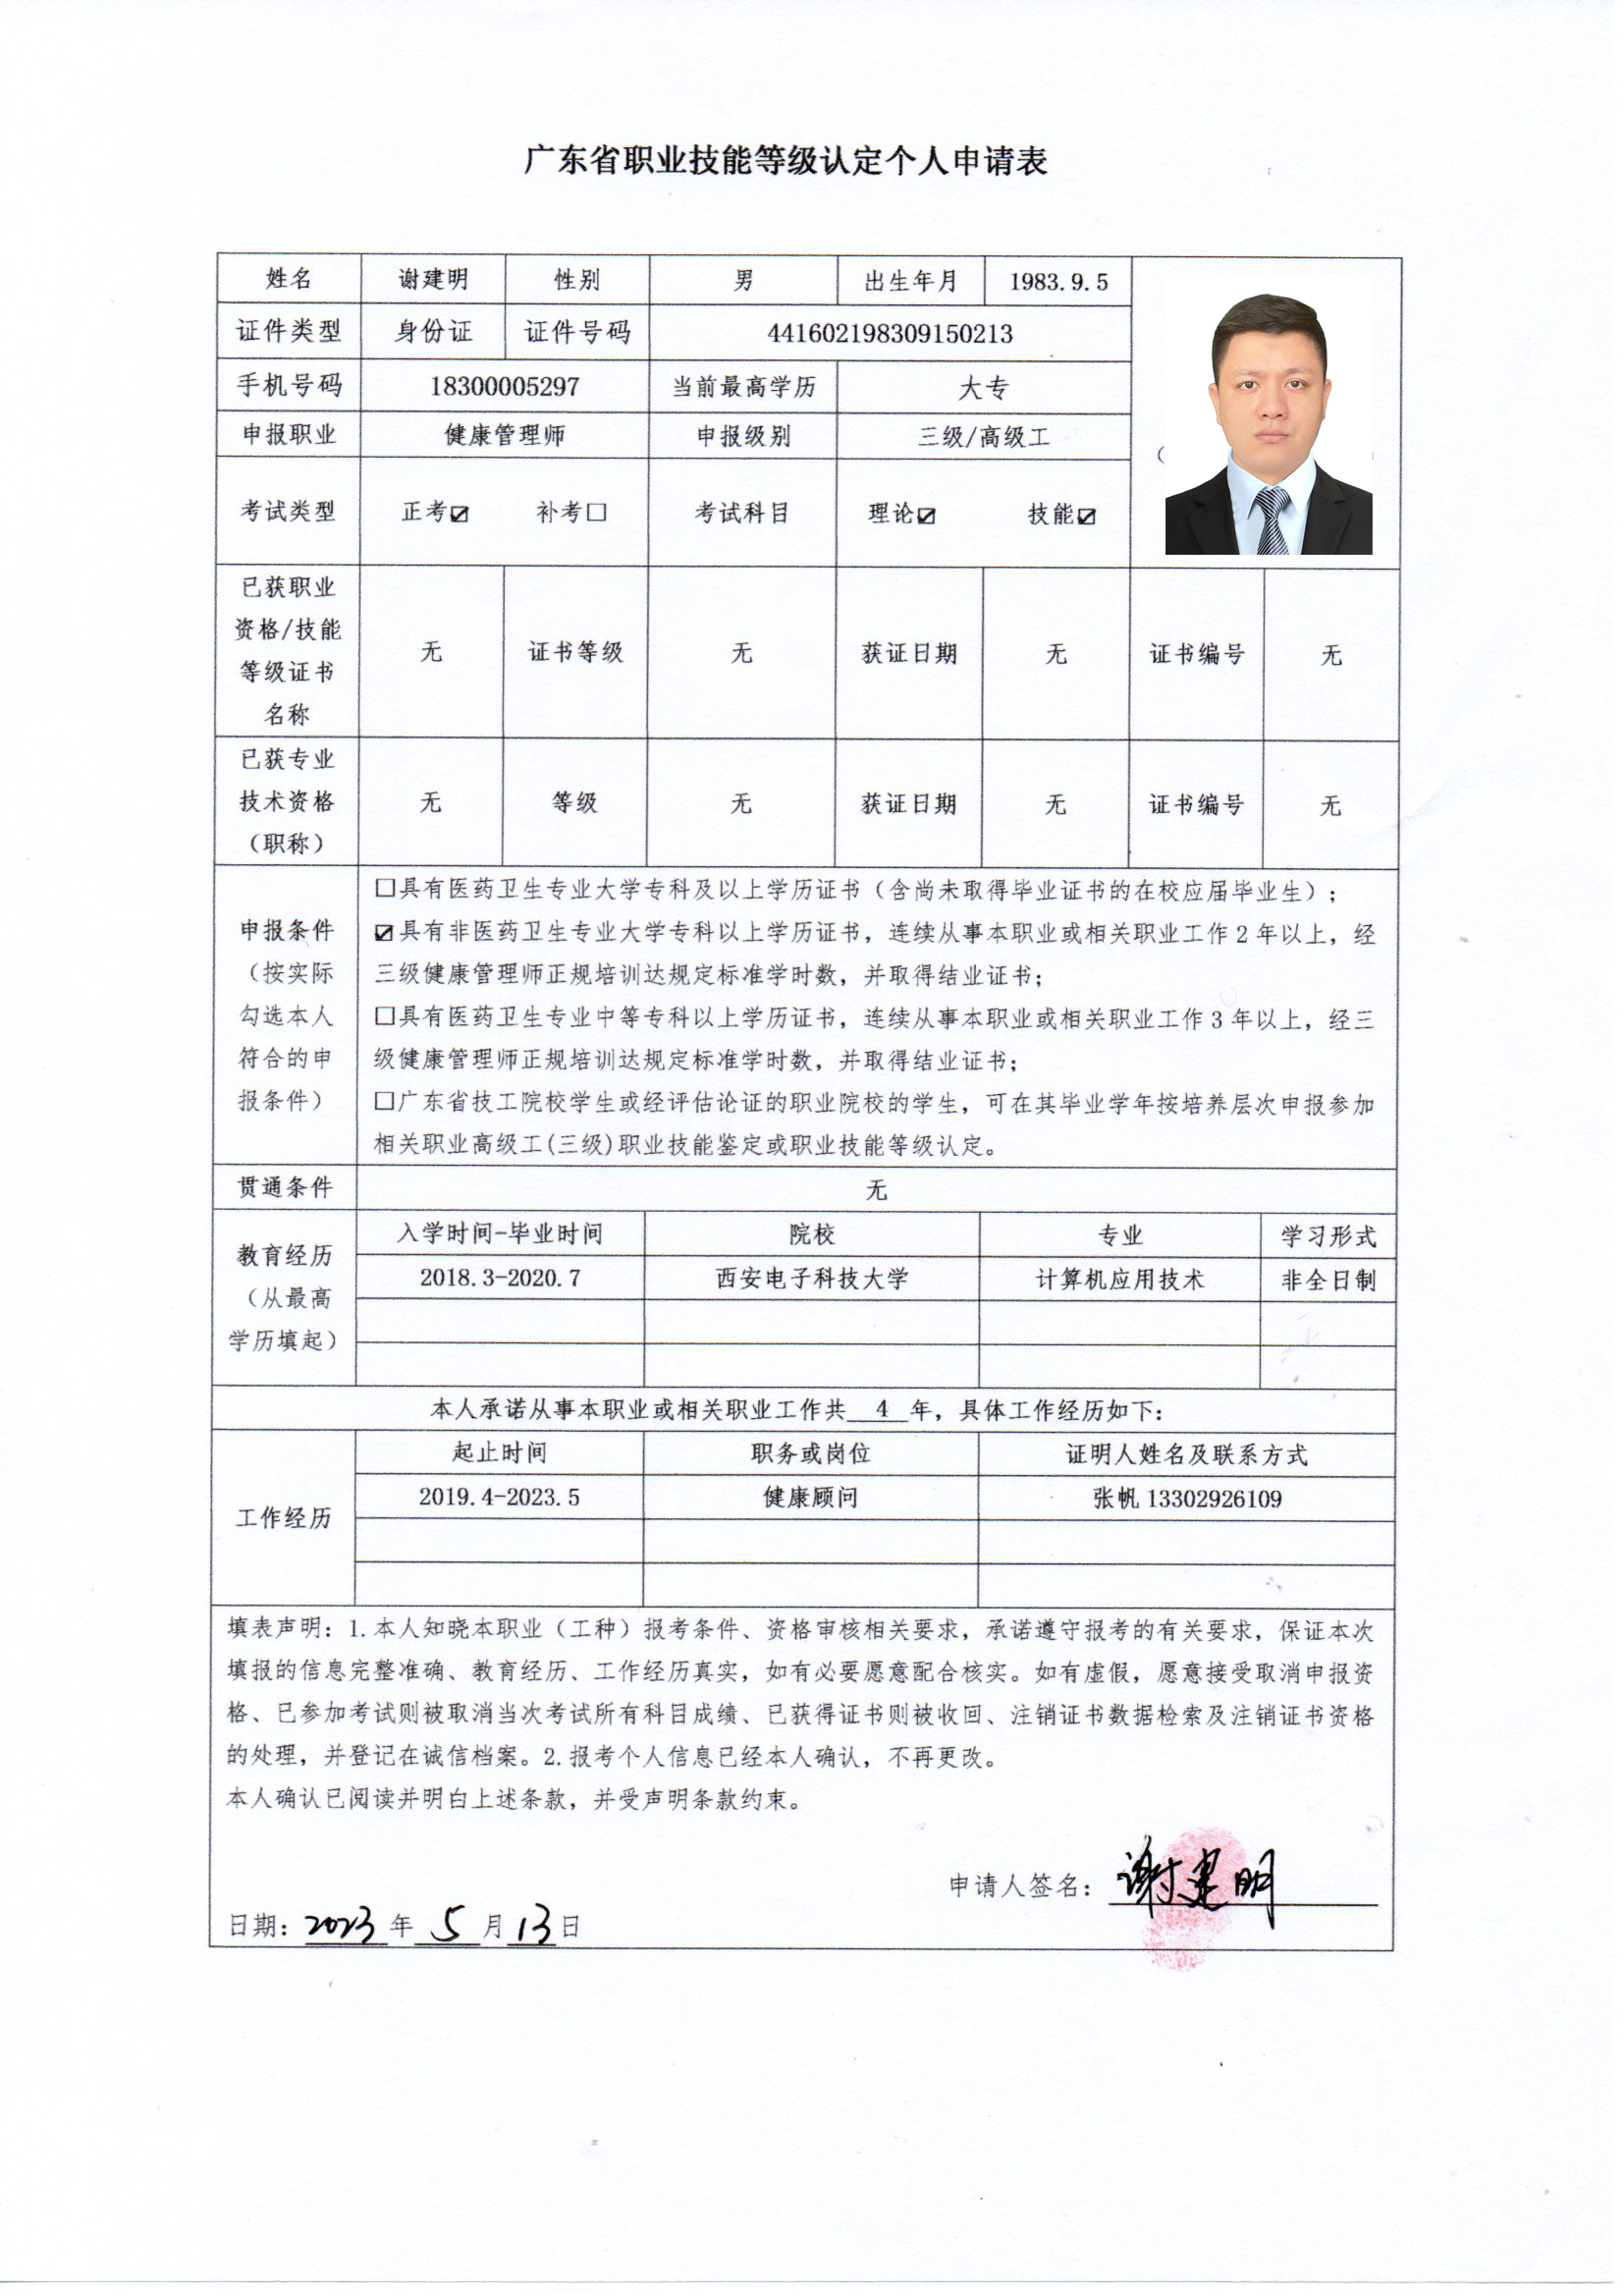 广东省职业技能等级认定个人申请表
姓名 谢建明 性别 男 出生年月 1983.9.5
证件类型 身份证 证件号码 441602198309150213
手机号码 18300005297 当前最高学历 大专
申报职业 健康管理师 申报级别 三级/高级工
考试类型 正考☑ 补考□ 考试科目 理论☑ 技能☑
已获职业
资格/技能
等级证书
名称
无 证书等级 无 获证日期 无 证书编号 无
已获专业
技术资格
（职称）
无 等级 无 获证日期 无 证书编号 无
申报条件
（按实际
勾选本人
符合的申
报条件）
□具有医药卫生专业大学专科及以上学历证书（含尚未取得毕业证书的在校应届毕业生）；
☑具有非医药卫生专业大学专科以上学历证书，连续从事本职业或相关职业工作2年以上，经
三级健康管理师正规培训达规定标准学时数，并取得结业证书；
□具有医药卫生专业中等专科以上学历证书，连续从事本职业或相关职业工作3年以上，经三
级健康管理师正规培训达规定标准学时数，并取得结业证书；
□广东省技工院校学生或经评估论证的职业院校的学生，可在其毕业学年按培养层次申报参加
相关职业高级工(三级)职业技能鉴定或职业技能等级认定。
贯通条件 无
教育经历
（从最高
学历填起）
入学时间-毕业时间 院校 专业 学习形式
2018.3-2020.7 西安电子科技大学 计算机应用技术 非全日制
本人承诺从事本职业或相关职业工作共 4 年，具体工作经历如下：
工作经历
起止时间 职务或岗位 证明人姓名及联系方式
2019.4-2023.5 健康顾问 张帆 13302926109
填表声明：1.本人知晓本职业（工种）报考条件、资格审核相关要求，承诺遵守报考的有关要求，保证本次
填报的信息完整准确、教育经历、工作经历真实，如有必要愿意配合核实。如有虚假，愿意接受取消申报资
格、已参加考试则被取消当次考试所有科目成绩、已获得证书则被收回、注销证书数据检索及注销证书资格
的处理，并登记在诚信档案。2.报考个人信息已经本人确认，不再更改。
本人确认已阅读并明白上述条款，并受声明条款约束。
申请人签名：谢建明
日期：2023年5月13日